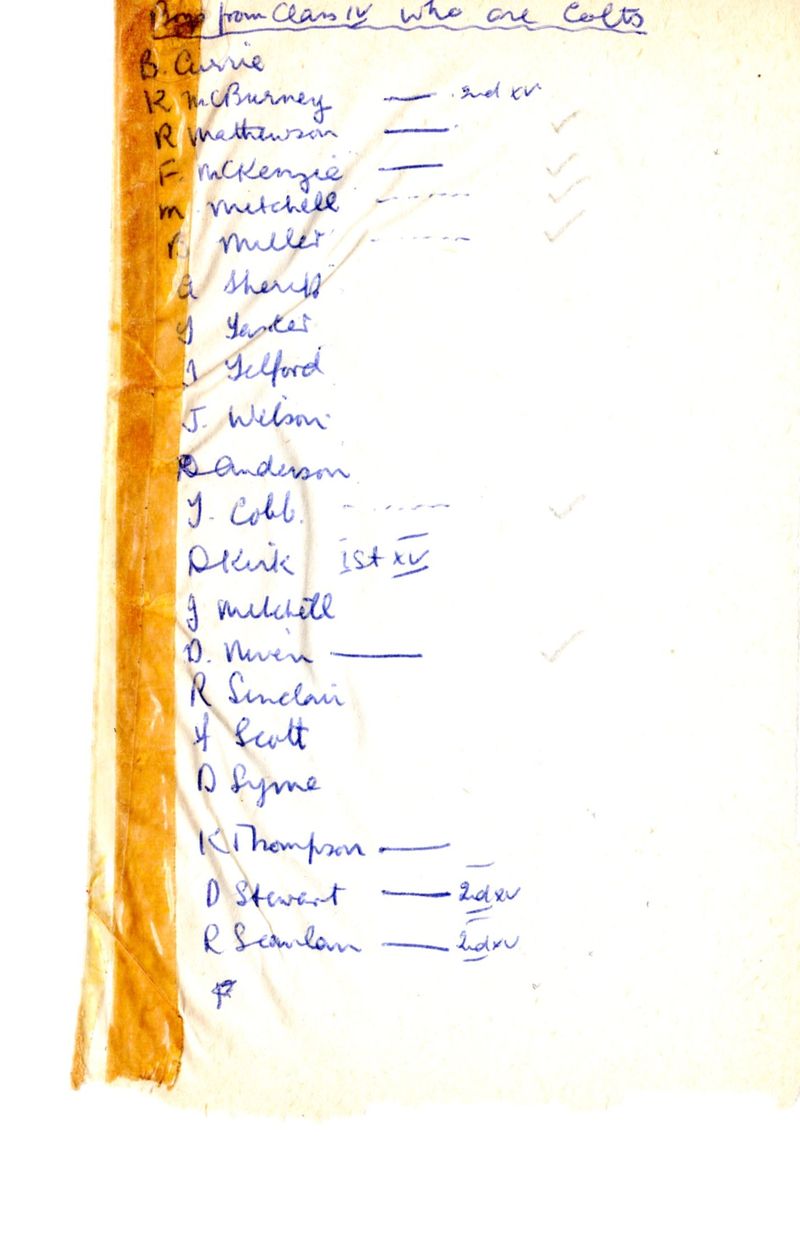 Boys from Class IV who are Colts
B. Currie
K McBurney — 2nd XV
R Mathewson —
F. McKenzie —
M. Mitchell - - - - -
B Miller - - - - -
A Sheriff
Y Yasker
J Telford
J. Wilson
D Anderson
T. Cobb. - - - - -
D Kirk 1st XV
J Mitchell
D. Niven —
R Sinclair
A Scott
D Syme
K Thompson —
D Stewart — 2nd XV
R Scanlan — 2nd XV